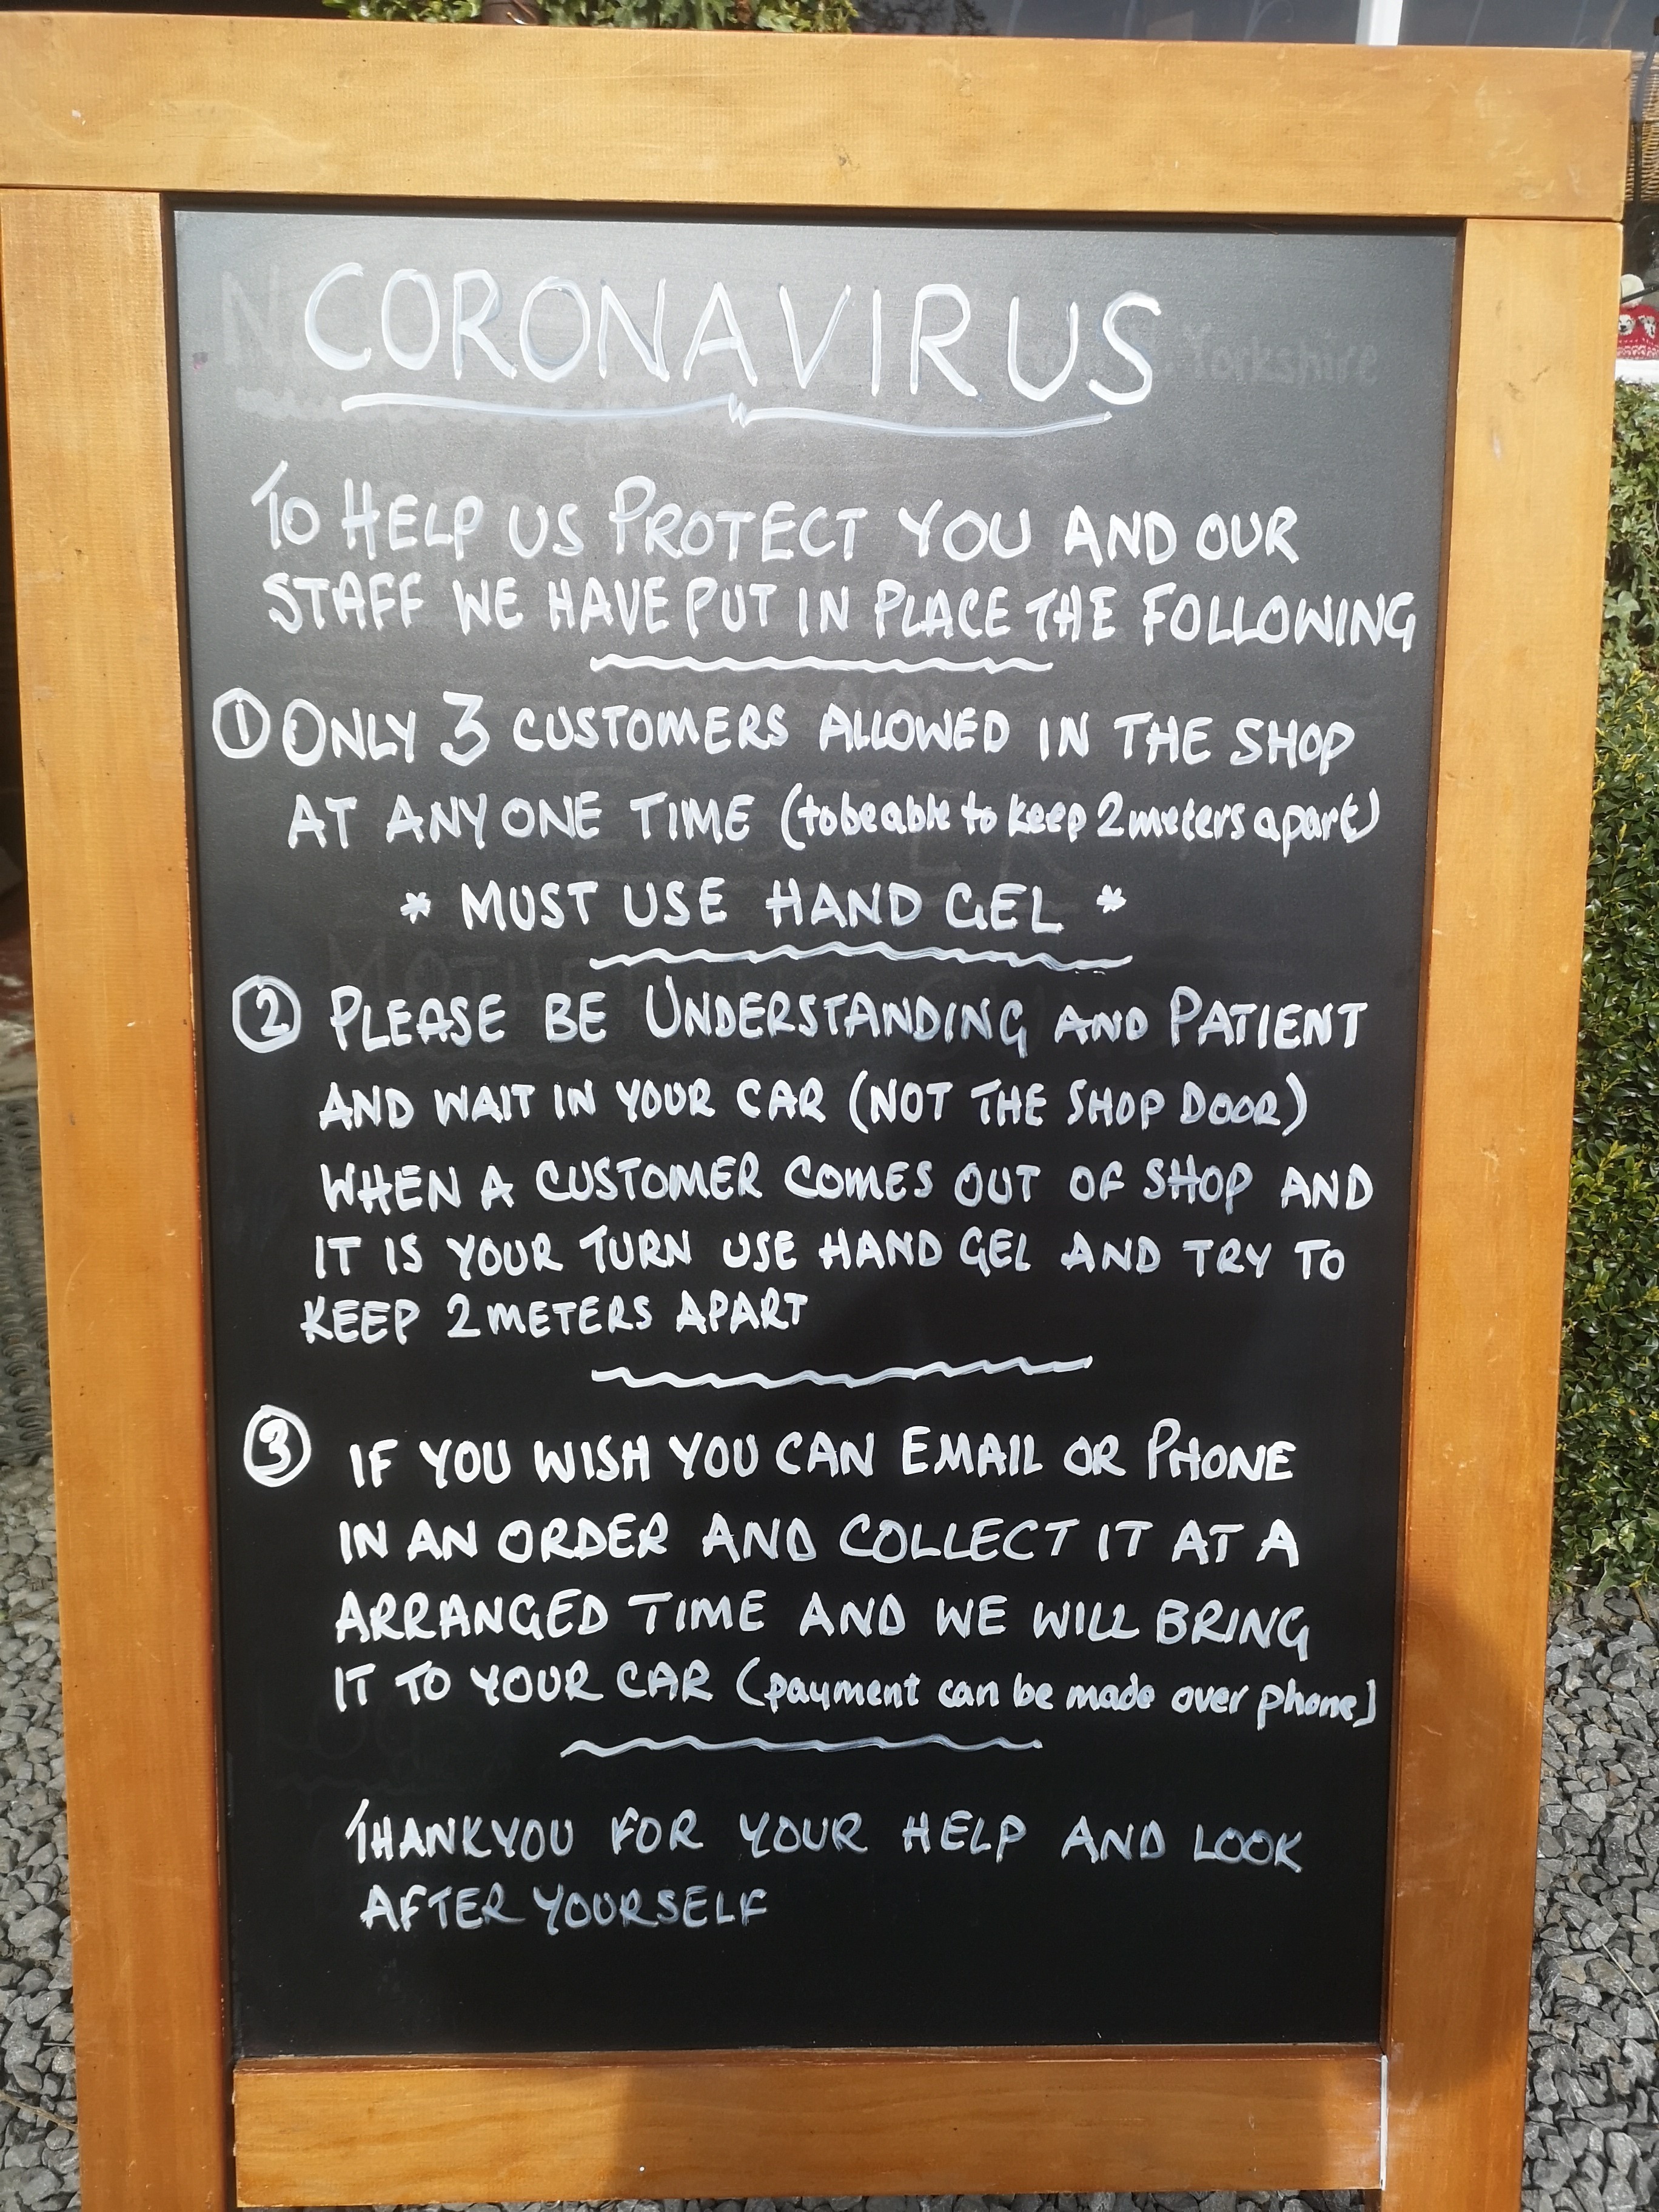 CORONAVIRUS
Yorkshire
TO HELP US PROTECT YOU AND OUR
STAFF WE HAVE PUT IN PLACE THE FOLLOWING
① ONLY 3 CUSTOMERS ALLOWED IN THE SHOP
AT ANY ONE TIME (to be able to keep 2 meters apart)
* MUST USE HAND GEL *
② PLEASE BE UNDERSTANDING AND PATIENT
AND WAIT IN YOUR CAR (NOT THE SHOP DOOR)
WHEN A CUSTOMER COMES OUT OF SHOP AND
IT IS YOUR TURN USE HAND GEL AND TRY TO
KEEP 2 METERS APART
③ IF YOU WISH YOU CAN EMAIL OR PHONE
IN AN ORDER AND COLLECT IT AT A
ARRANGED TIME AND WE WILL BRING
IT TO YOUR CAR (payment can be made over phone)
THANKYOU FOR YOUR HELP AND LOOK
AFTER YOURSELF